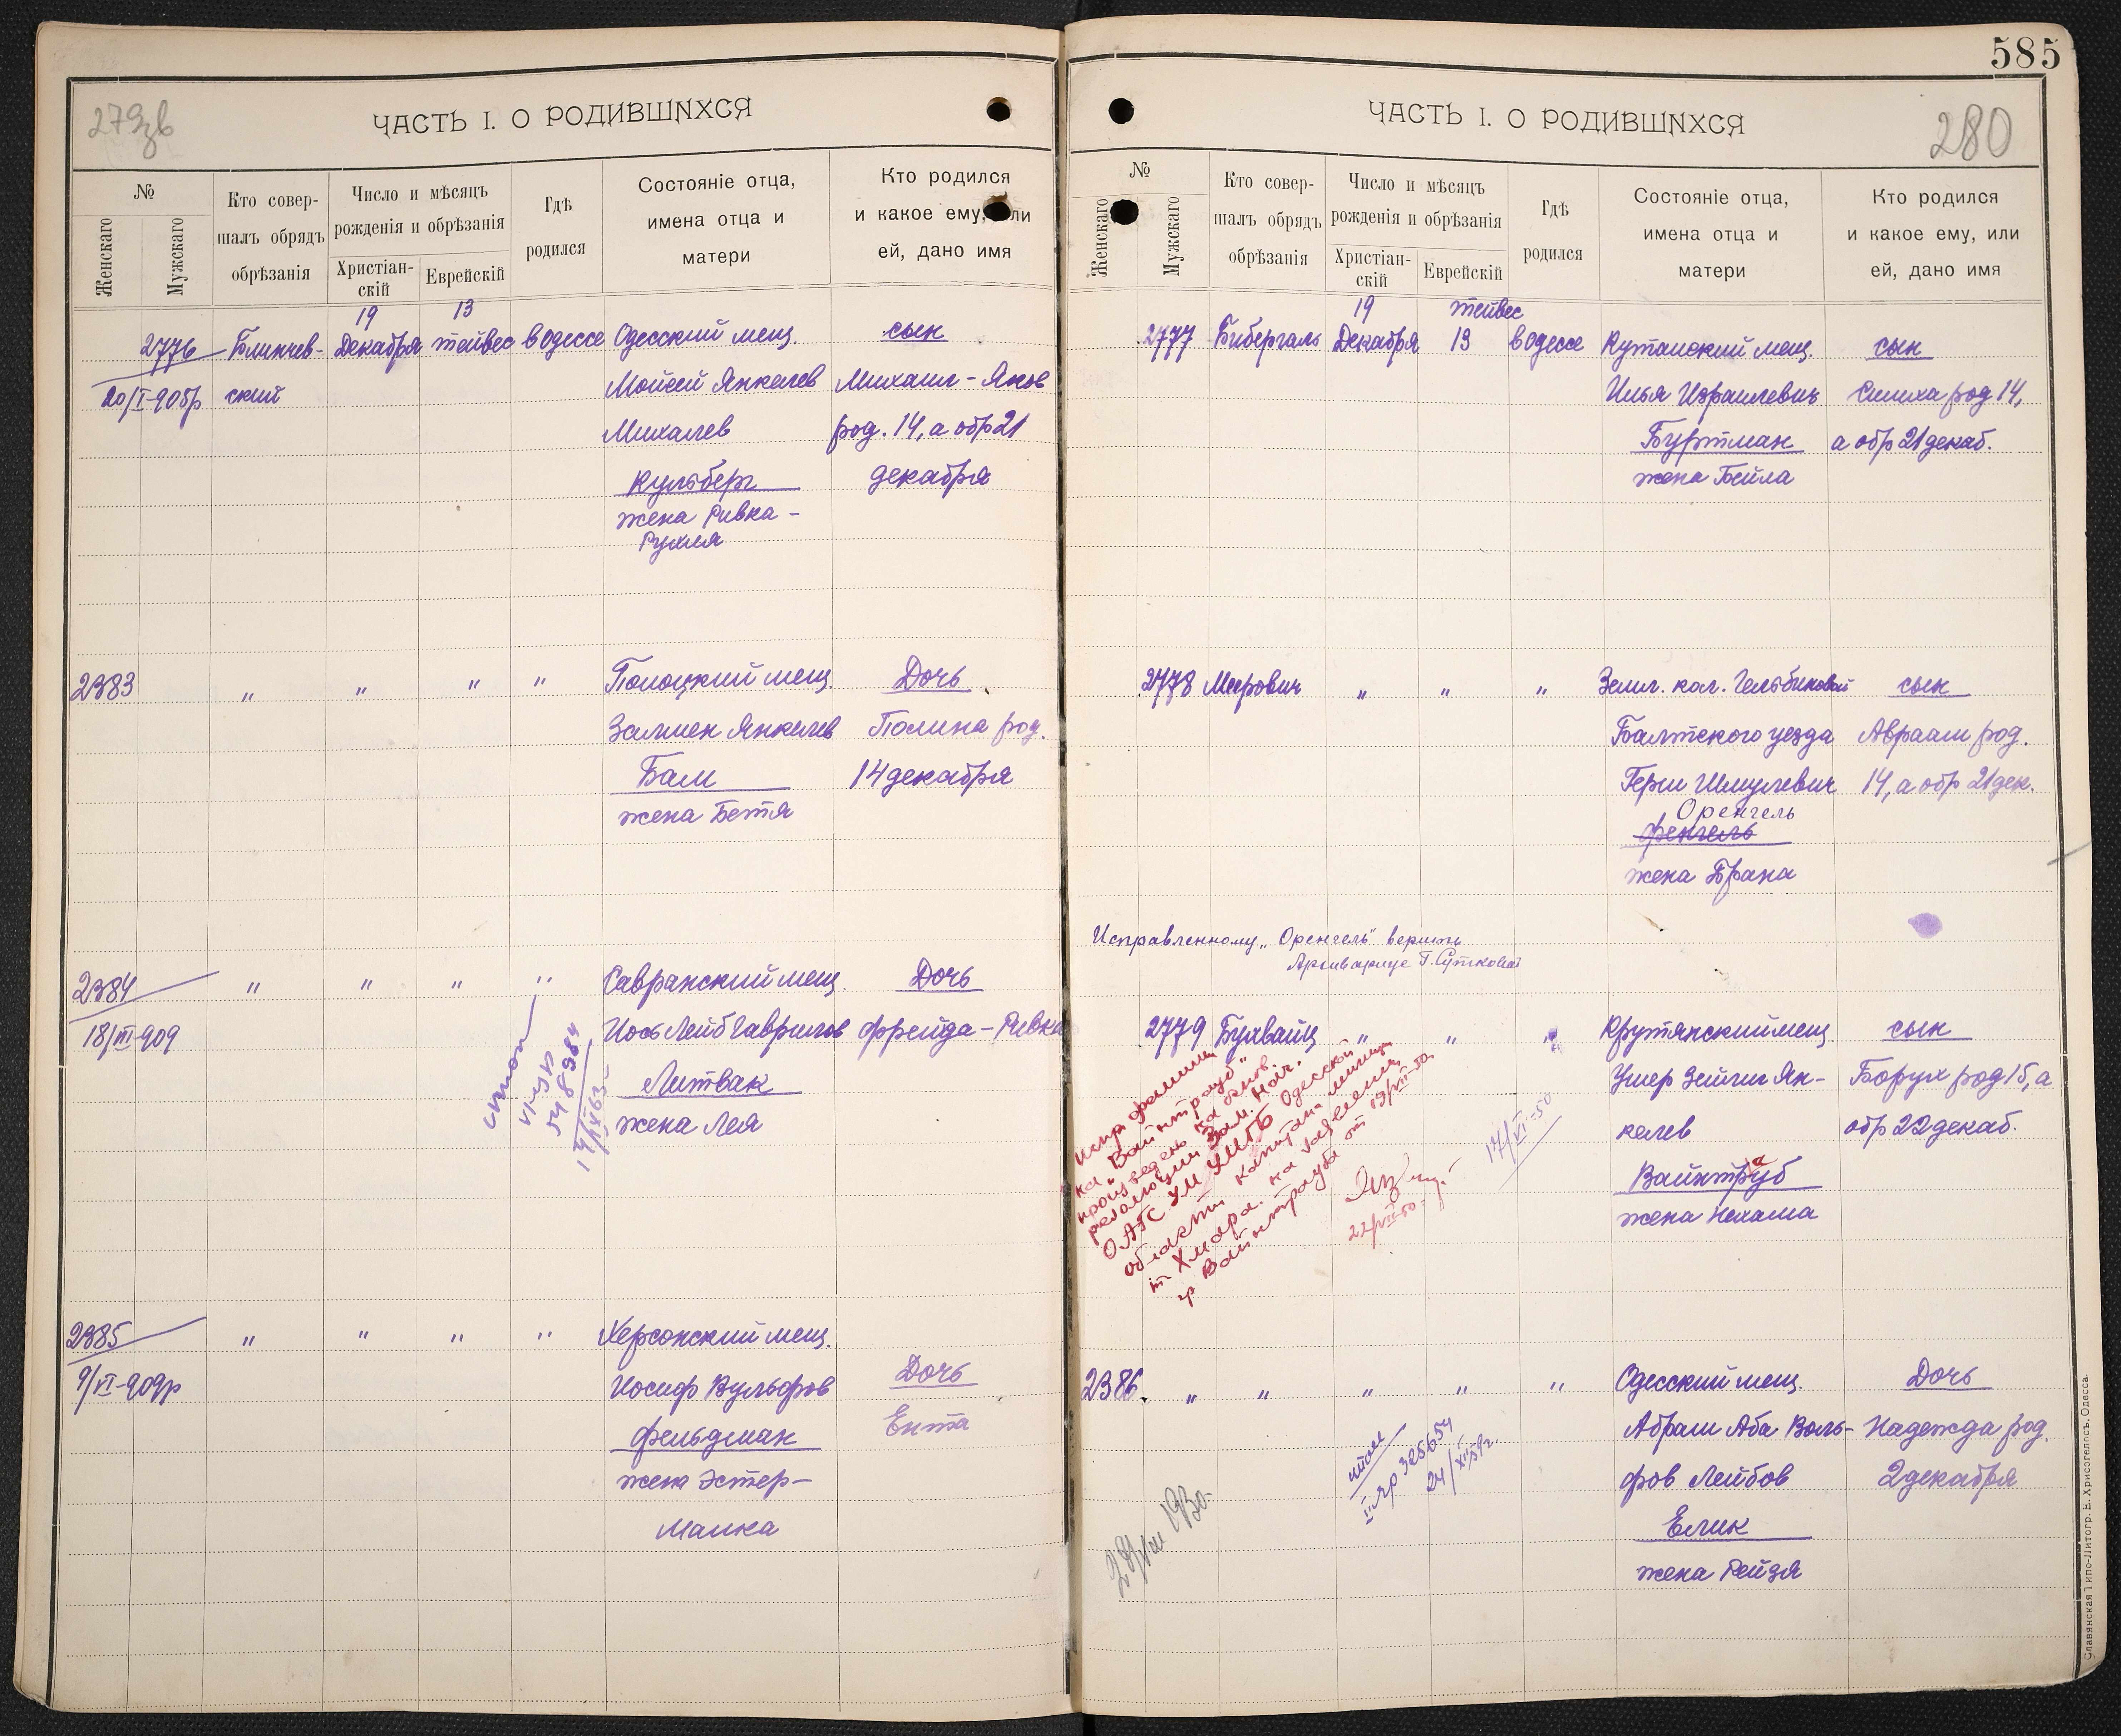 585
279зв
ЧАСТЬ I. О РОДИВШИХСЯ
№
Женскаго
Мужскаго
Кто совер-
шалъ обрядъ
обрѣзанія
Число и мѣсяцъ
рожденія и обрѣзанія
Христіан-
скій
Еврейскій
Гдѣ
родился
Состояніе отца,
имена отца и
матери
Кто родился
и какое ему, или
ей, дано имя
19 13
2776 Бликчев- Декабря тейвес в Одессе Одесский мещ. сын
20/I-90 ский Мойсей Янкелев Михаил-Яков
Михалев род. 14, а обр 21
Кульберг декабря
жена Ривка-
Рухля
2383 " " " " Полоцкий мещ. Дочь
Залмен Янкелев Полина род.
Бам 14 декабря
жена Бетя
2384 " " " " Савранский мещ. Дочь
18/III-909 Иось Лейб Гаврилов Фрейда-Ривка
Литвак
жена Лея
548984
2385 " " " " Херсонский мещ.
9/VI-909р Иосиф Вульфов Дочь
Фельдман Ента
жена Эстер-
Малка
ЧАСТЬ I. О РОДИВШИХСЯ
280
№
Женскаго
Мужскаго
Кто совер-
шалъ обрядъ
обрѣзанія
Число и мѣсяцъ
рожденія и обрѣзанія
Христіан-
скій
Еврейскій
Гдѣ
родился
Состояніе отца,
имена отца и
матери
Кто родился
и какое ему, или
ей, дано имя
19 тейвес
2777 Бибергаль Декабря 13 в Одессе мещ. сын
Илья Израилевич Симха род 14,
Буртман а обр 21 декаб.
жена Бейла
2778 Меерович " " " Земл. кол. сын
Балтского уезда Авраам род.
Герш Шмулевич 14, а обр 21 дек.
Оренгель
Френгель
жена Брана
Исправленному „Оренгель" верить
Архивариус Г. Сутковой
2779 Бухвайц " " " Крутянский мещ. сын
Ушер Зейлиг Ян- Борух род 15, а
келев обр 22 декаб.
Вайнтрауб
жена Нехама
Испр фамилии
на „Вайнтрауб"
произведень на основ.
резолюции Зам. Нач.
ОАГС УМ УМГБ Одесской
области капитана милиции
т. Хмара. на заявлении
гр Вайнтрауба от 19/VII-50
22/VII-50.
17/VI-50
2386. " " " " " Одесский мещ. Дочь
Абрам Аба Воль- Надежда род.
фов Лейбов 2 декабря
Елик
жена Рейзя
325654
24/XII59г.
Славянская Типо-Литогр. Е. Хрисогелосъ. Одесса.